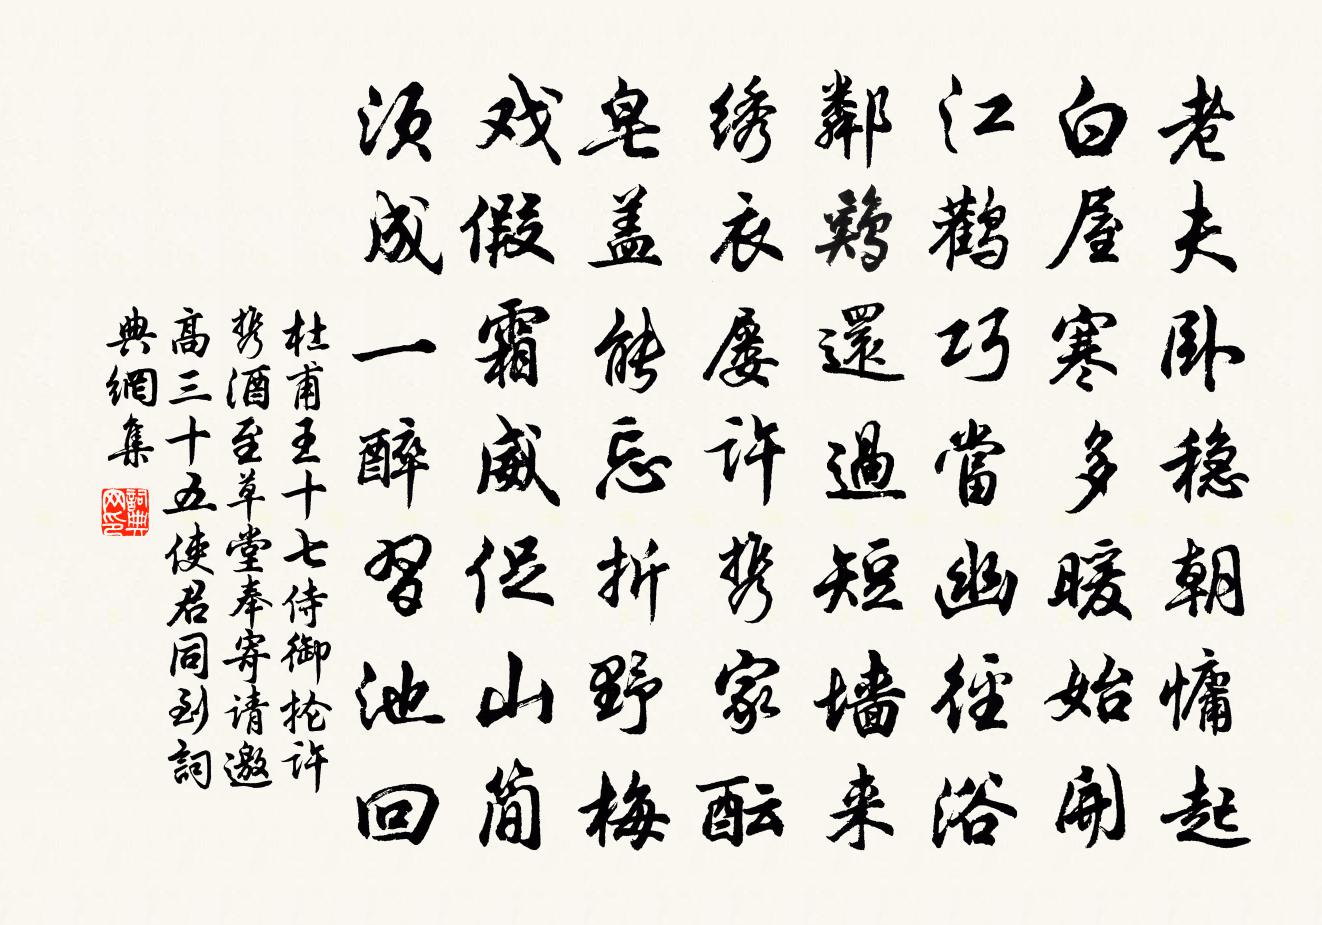 老夫卧稳朝慵起
白屋寒多暖始开
江鹳巧當幽徑浴
鄰鷄還過短墙来
绣衣屡许携家酝
皂盖能忘折野梅
戏假霜威促山简
须成一醉習池回
杜甫王十七侍御抡许
携酒至草堂奉寄请邀
高三十五使君同到詞
典網集
詞典
网印